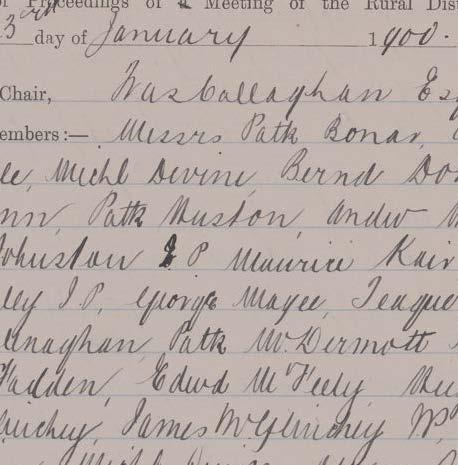 of Proceedings of a Meeting of the Rural Dist
3rd day of January 1900.
Chair, Callaghan Esq
embers:— Messrs Patk Bonar,
ee, Michl Devine, Bernd Do
nn, Patk Huston, Andw
Johnston J P Maurice
ley J.P. George Magee, Teague
llnaghan, Patk McDermott
Fadden, Edwd McFeely, Hu
James McGlinchey Wm